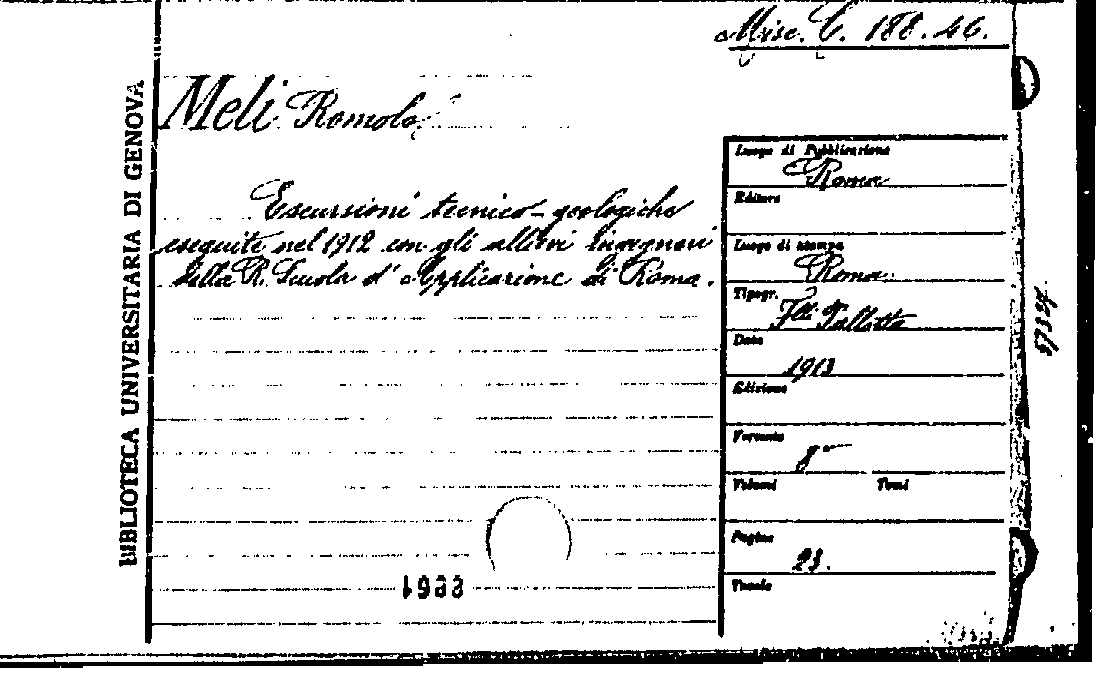 Misc. C. 188.46.
BIBLIOTECA UNIVERSITARIA DI GENOVA
Meli Romolo
Escursioni tecnico-geologiche
eseguite nel 1912 con gli allievi ingegneri
della R. Scuola d'Applicazione di Roma.
Luogo di Pubblicazione
Roma
Editore
Luogo di stampa
Roma
Tipogr.
Flli Pallotta
Data
1913
Edizione
Formato
8°
Volumi Tomi
Pagine
23.
Tavole